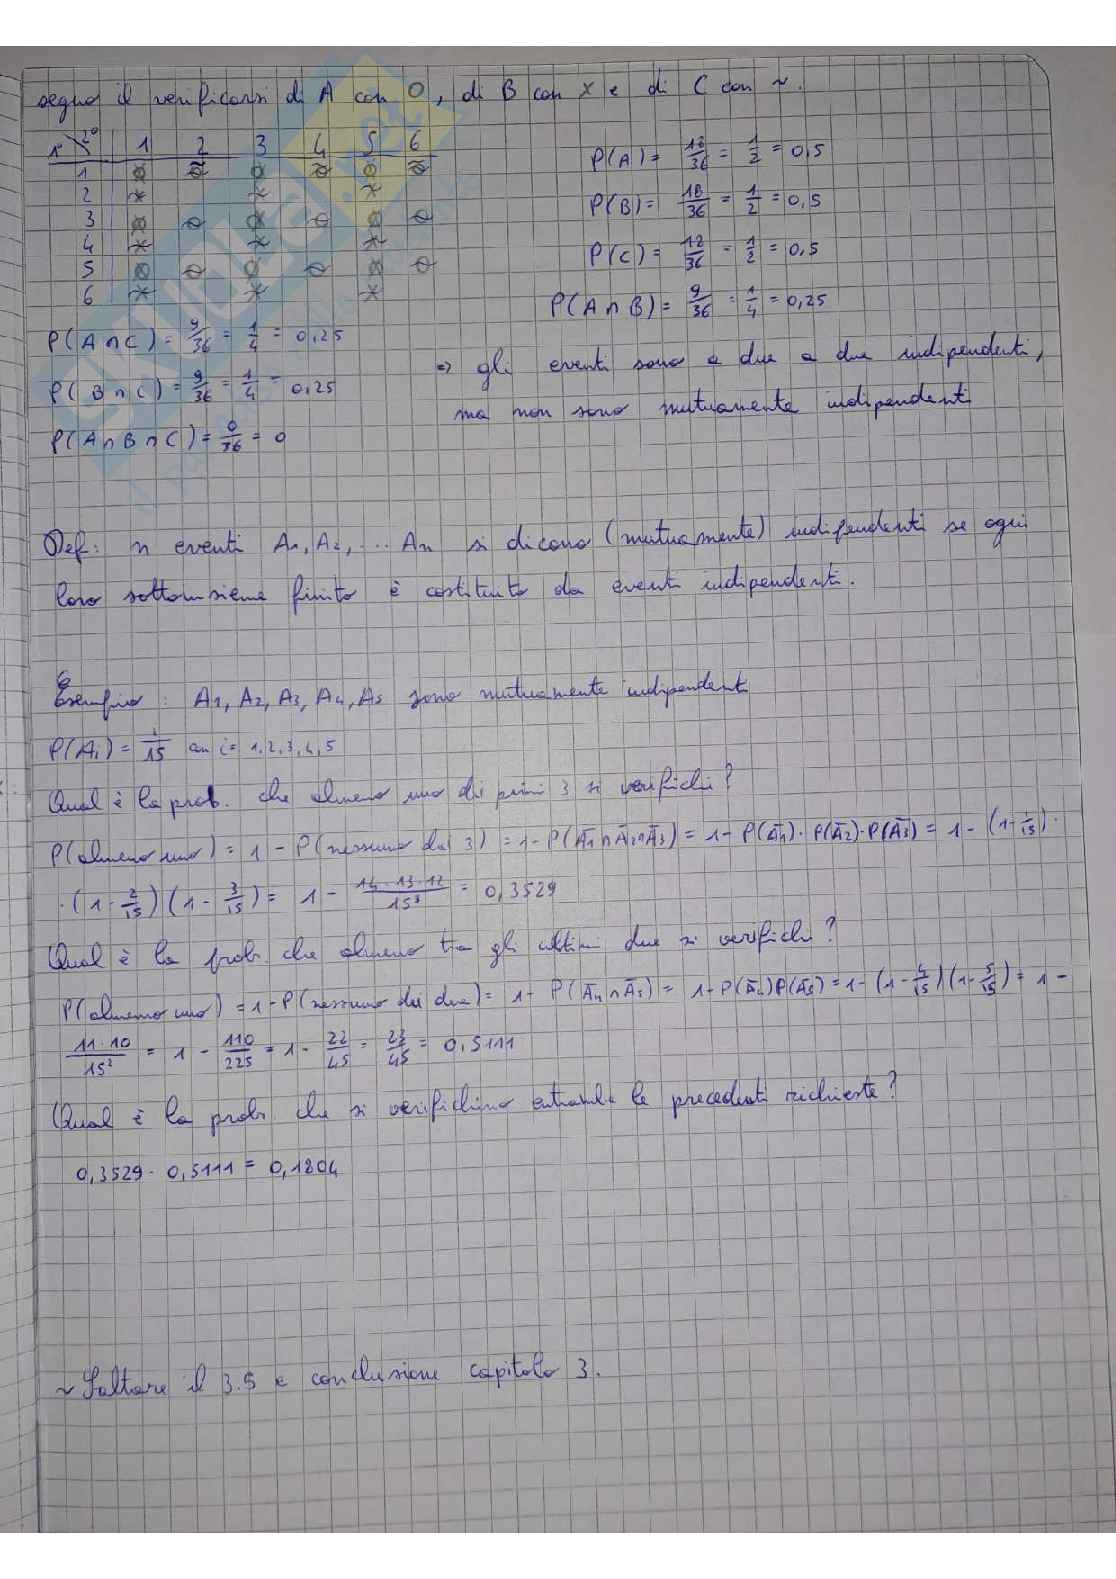 segno il verificarsi di A con O, di B con X e di C con ~.
1° 2° 1 2 3 4 5 6
1
2
3
4
5
6
P(A) = 18/36 = 1/2 = 0,5
P(B) = 18/36 = 1/2 = 0,5
P(C) = 12/36 = 1/2 = 0,5
P(A∩B) = 9/36 = 1/4 = 0,25
P(A∩C) = 9/36 = 1/4 = 0,25
P(B∩C) = 9/36 = 1/4 = 0,25
P(A∩B∩C) = 0/36 = 0
=> gli eventi sono a due a due indipendenti,
ma non sono mutuamente indipendenti
Def: n eventi A1, A2, ... An si dicono (mutuamente) indipendenti se ogni
loro sottoinsieme finito è costituito da eventi indipendenti.
Esempio: A1, A2, A3, A4, A5 sono mutuamente indipendenti
P(Ai) = i/15 con i = 1,2,3,4,5
Qual è la prob. che almeno uno dei primi 3 si verifichi?
P(almeno uno) = 1 - P(nessuno dei 3) = 1 - P(Ā1∩Ā2∩Ā3) = 1 - P(Ā1)·P(Ā2)·P(Ā3) = 1 - (1-1/15)·
·(1-2/15)(1-3/15) = 1 - 14·13·12/15³ = 0,3529
Qual è la prob. che almeno tra gli ultimi due si verifichi?
P(almeno uno) = 1 - P(nessuno dei due) = 1 - P(Ā4∩Ā5) = 1 - P(Ā4)P(Ā5) = 1 - (1-4/15)(1-5/15) = 1 -
11·10/15² = 1 - 110/225 = 1 - 22/45 = 23/45 = 0,5111
Qual è la prob. che si verifichino entrambe le precedenti richieste?
0,3529 · 0,5111 = 0,1804
~ Saltare il 3.5 e conclusione capitolo 3.